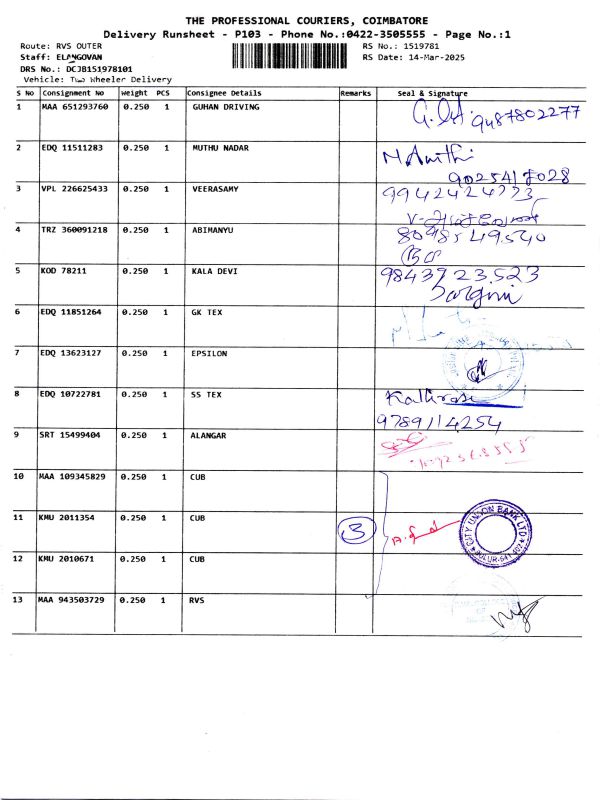 THE PROFESSIONAL COURIERS, COIMBATORE
Delivery Runsheet - P103 - Phone No.:0422-3505555 - Page No.:1
Route: RVS OUTER RS No.: 1519781
Staff: ELANGOVAN RS Date: 14-Mar-2025
DRS No.: DCJB151978101
Vehicle: Two Wheeler Delivery
S No Consignment No Weight PCS Consignee Details Remarks Seal & Signature
1 MAA 651293760 0.250 1 GUHAN DRIVING 9487802277
2 EDQ 11511283 0.250 1 MUTHU NADAR
9025417028
3 VPL 226625433 0.250 1 VEERASAMY 9942424773
4 TRZ 360091218 0.250 1 ABIMANYU 8098549540
5 KOD 78211 0.250 1 KALA DEVI 9843923523
6 EDQ 11851264 0.250 1 GK TEX
7 EDQ 13623127 0.250 1 EPSILON
8 EDQ 10722781 0.250 1 SS TEX
9789114254
9 SRT 15499404 0.250 1 ALANGAR
10 MAA 109345829 0.250 1 CUB
11 KMU 2011354 0.250 1 CUB 3 CITY UNION BANK LTD
12 KMU 2010671 0.250 1 CUB
13 MAA 943503729 0.250 1 RVS